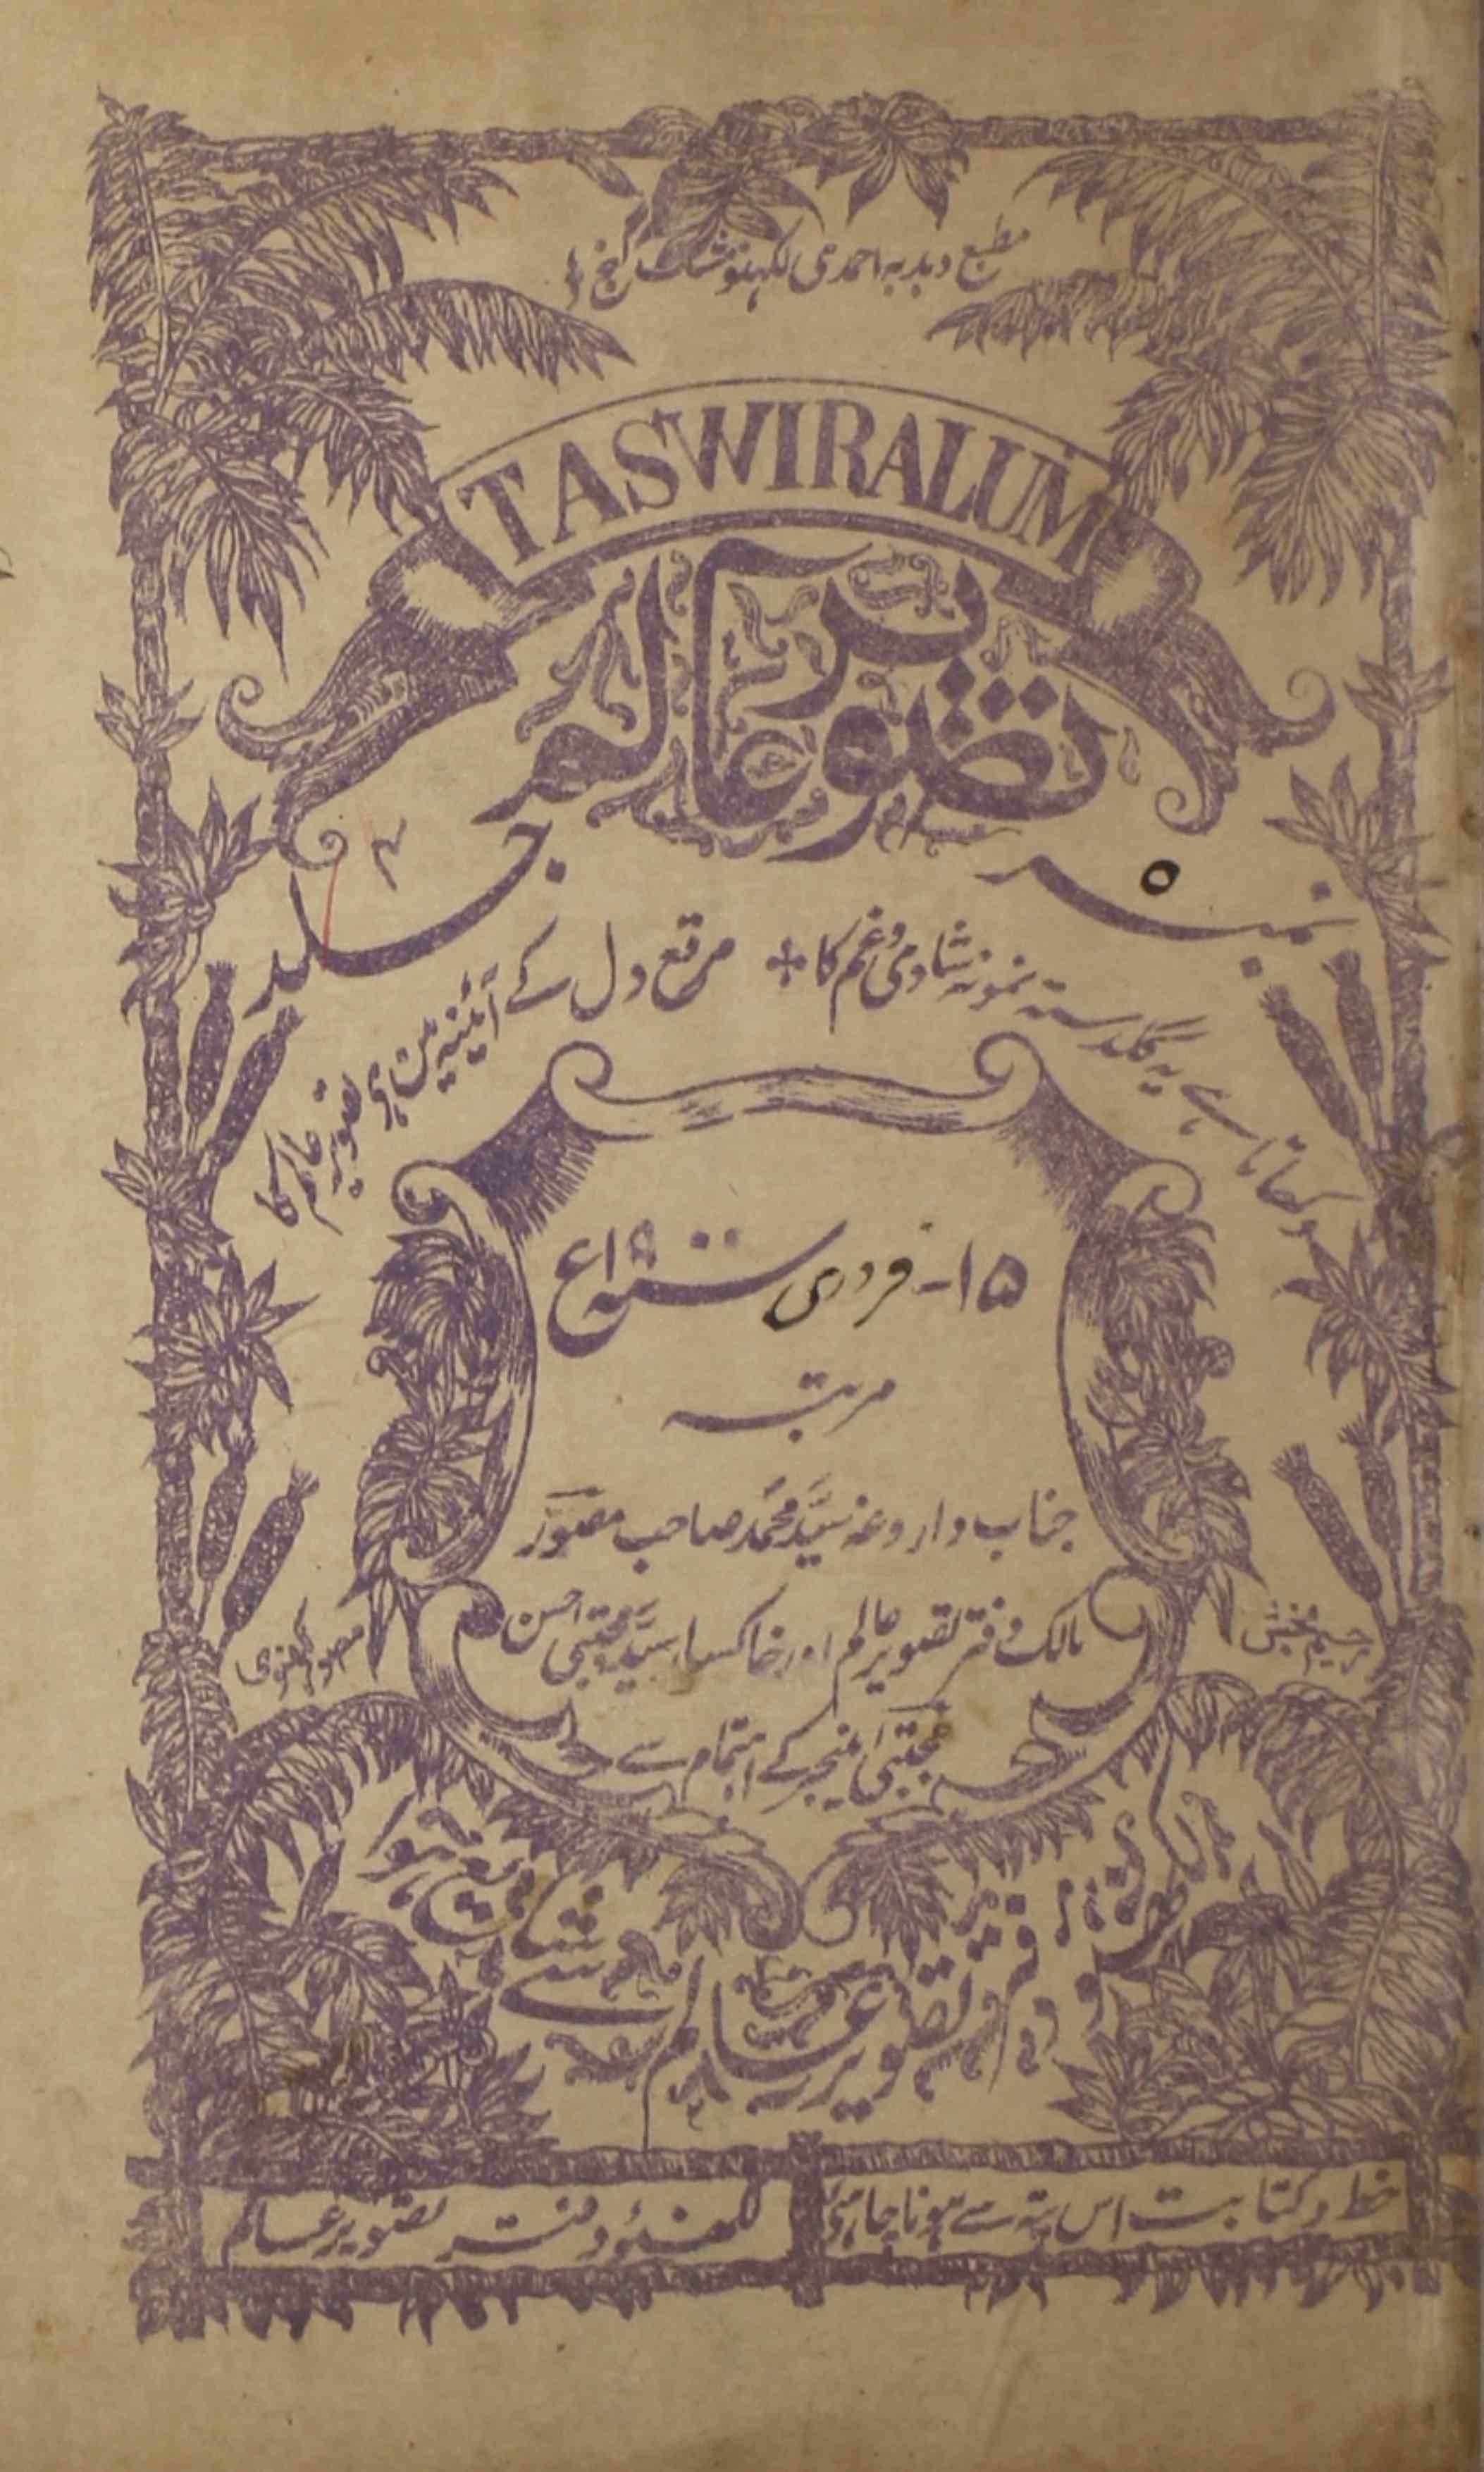 مطبع دبدبہ احمدی لکھنؤ مشک گنج
TASWIRALUM
تصویر عالم
نمبر ۵
جلد ۴
دکھاتا ہے یہ گلدستہ نمونہ شادی و غم کا + مرقع دل کے آئینہ میں ہے تصویر عالم کا
۱۵- فروری سنہ ۱۹۰۰ع
مرتبہ
جناب داروغہ سیّد محمّد صاحب مصوّر
مالک دفتر تصویر عالم اور خاکسار سیّد مجتبیٰ حسن
مجتبیٰ منیجر کے اہتمام سے
رحیم بخش
لکھنوی
دفتر تصویر عالم سے شایع ہوا
خط و کتابت اس پتہ سے ہونا چاہئے
لکھنؤ دفتر تصویر عالم